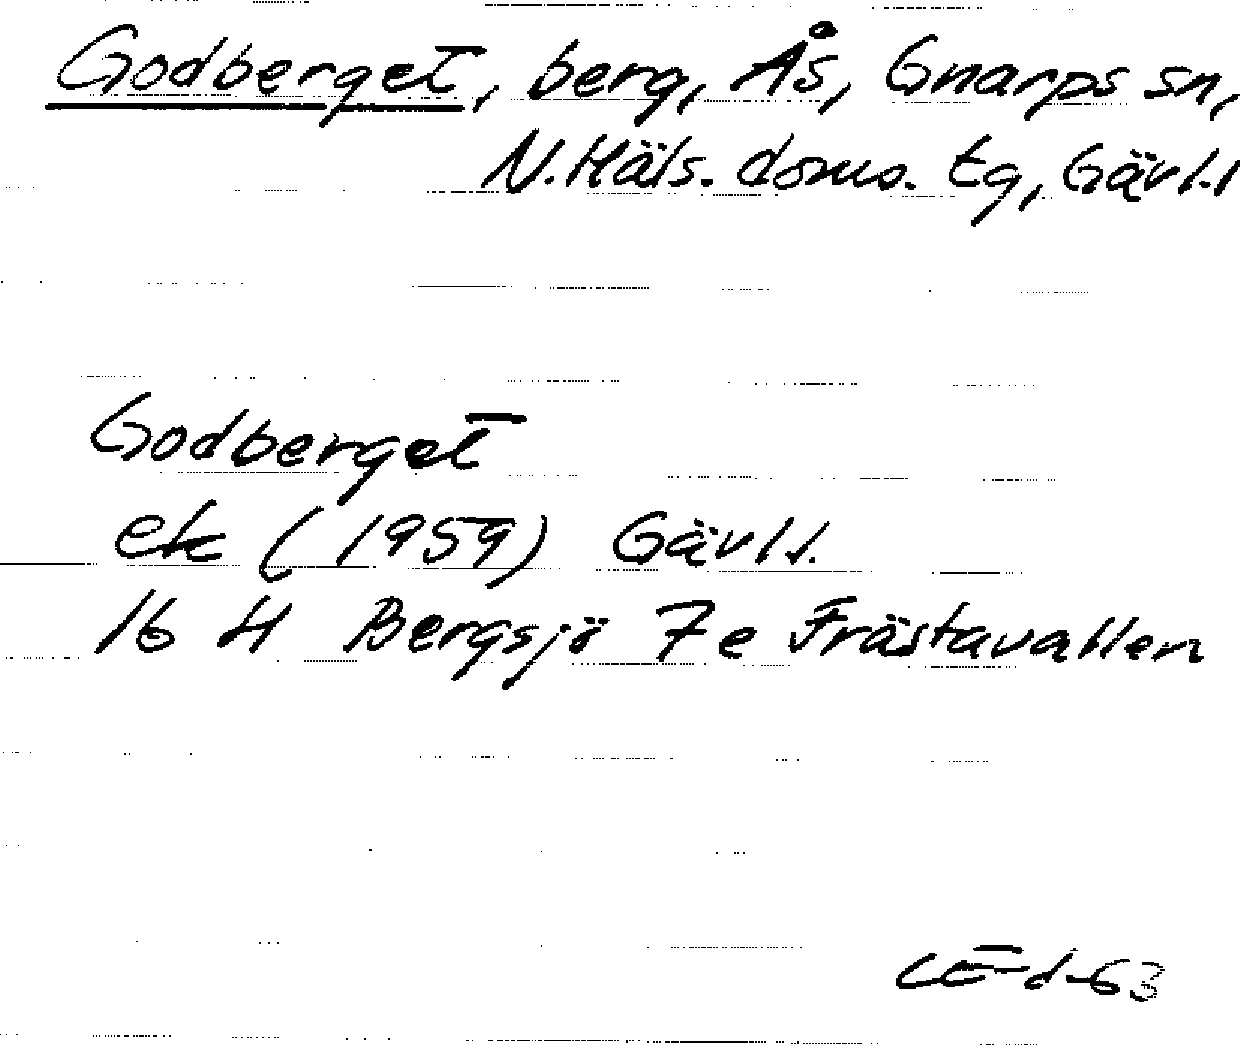 Godberget, berg, Ås, Gnarps sn,
N. Häls. doms. tg, Gävl. l
Godberget
ek (1959) Gävl l.
16 H Bergsjö 7 e Frästavallen